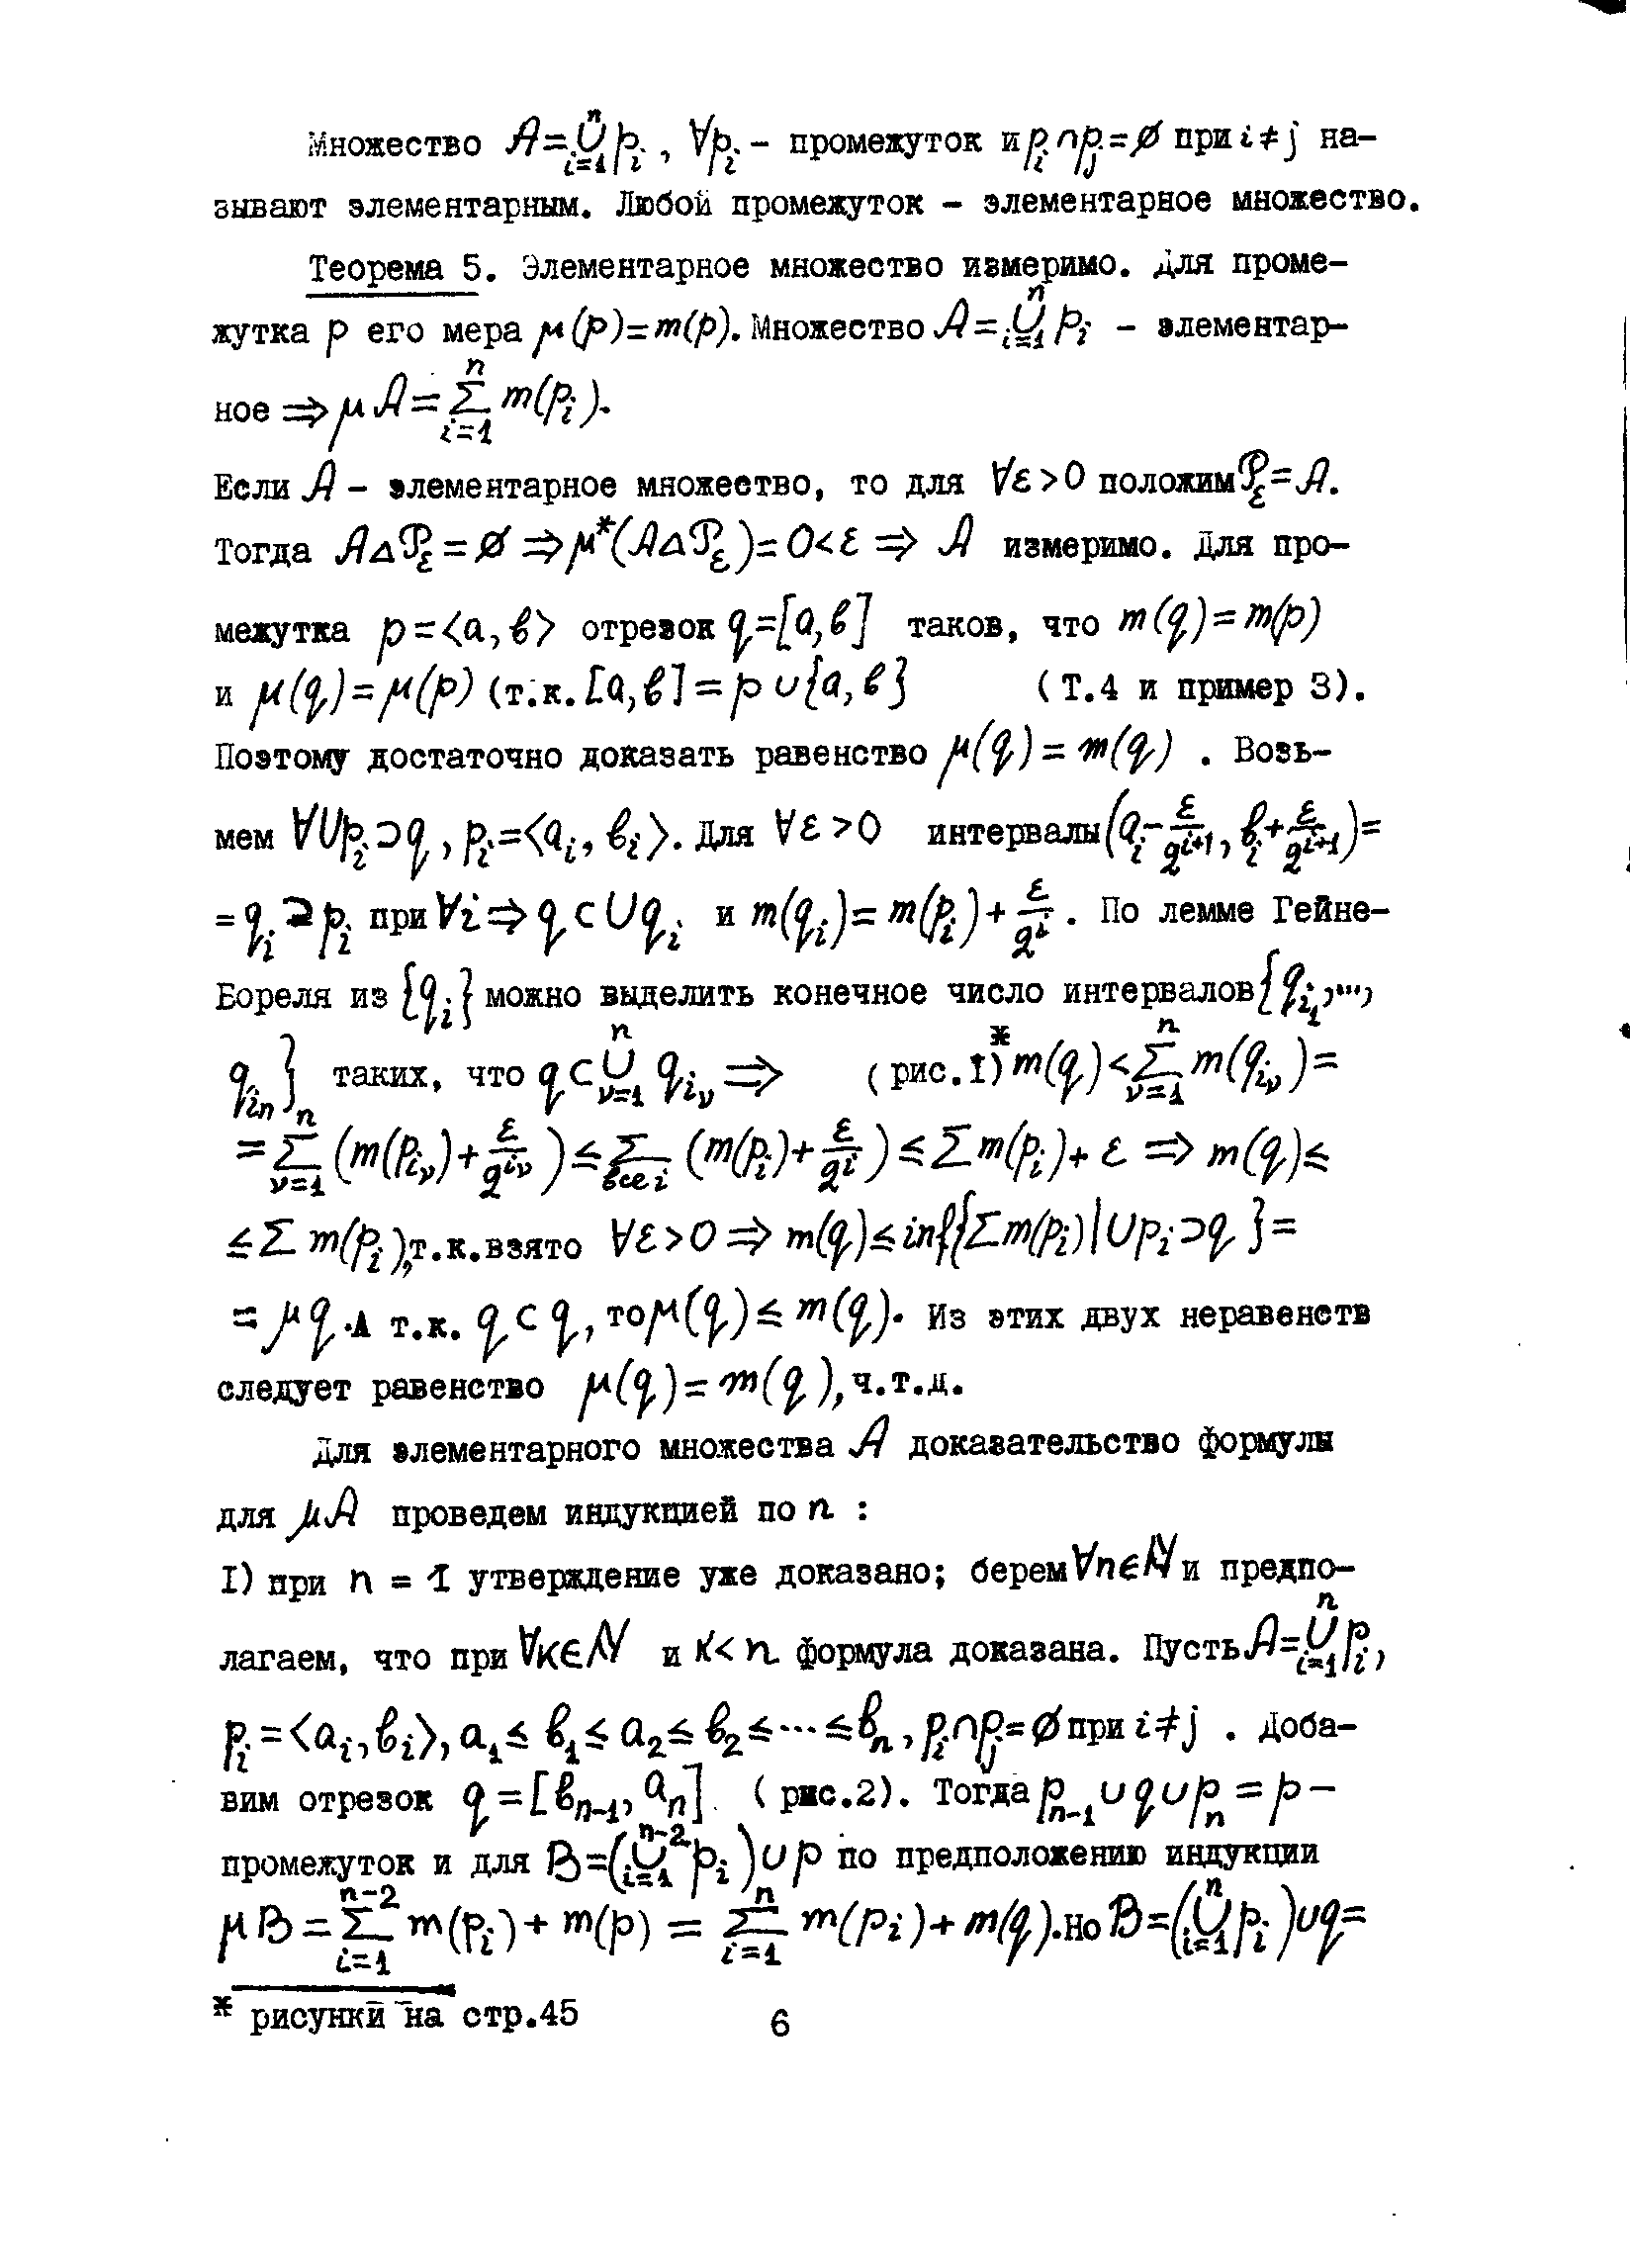 Множество A=⋃ᵢ₌₁ⁿ pᵢ, ∀pᵢ – промежуток и pᵢ∩pⱼ=∅ при i≠j на-
зывают элементарным. Любой промежуток – элементарное множество.
Теорема 5. Элементарное множество измеримо. Для проме-
жутка p его мера μ(p)=m(p). Множество A=⋃ᵢ₌₁ⁿ pᵢ – элементар-
ное ⇒ μA=∑ᵢ₌₁ⁿ m(pᵢ).
Если A – элементарное множество, то для ∀ε>0 положим 𝒫_ε=A.
Тогда A△𝒫_ε=∅ ⇒ μ*(A△𝒫_ε)=0<ε ⇒ A измеримо. Для про-
межутка p=<a,в> отрезок q=[a,в] таков, что m(q)=m(p)
и μ(q)=μ(p) (т.к. [a,в]=p∪{a,в} (Т.4 и пример 3).
Поэтому достаточно доказать равенство μ(q)=m(q) . Возь-
мем ∀⋃pᵢ⊃q, pᵢ=<aᵢ, вᵢ>. Для ∀ε>0 интервалы (aᵢ-ε/2^{i+1}, вᵢ+ε/2^{i+1})=
=qᵢ⊇pᵢ при ∀i ⇒ q⊂⋃qᵢ и m(qᵢ)=m(pᵢ)+ε/2^i. По лемме Гейне-
Бореля из {qᵢ} можно выделить конечное число интервалов {q_{i_1},...,
q_{i_n}} таких, что q⊂⋃_{ν=1}^n q_{i_ν} ⇒ (рис.I)* m(q)<∑_{ν=1}^n m(q_{i_ν})=
=∑_{ν=1}^n (m(p_{i_ν})+ε/2^{i_ν})≤∑_{все i} (m(pᵢ)+ε/2^i)≤∑m(pᵢ)+ε ⇒ m(q)≤
≤∑m(pᵢ), т.к.взято ∀ε>0 ⇒ m(q)≤inf{∑m(pᵢ)|⋃pᵢ⊃q}=
=μq. А т.к. q⊂q, то μ(q)≤m(q). Из этих двух неравенств
следует равенство μ(q)=m(q), ч.т.д.
Для элементарного множества A доказательство формулы
для μA проведем индукцией по n :
I) при n = 1 утверждение уже доказано; берем ∀n∈ℕ и предпо-
лагаем, что при ∀к∈ℕ и к<n формула доказана. Пусть A=⋃ᵢ₌₁ⁿ pᵢ,
pᵢ=<aᵢ,вᵢ>, a₁≤в₁≤a₂≤в₂≤···≤вₙ, pᵢ∩pⱼ=∅ при i≠j . Доба-
вим отрезок q=[в_{n-1}, a_n] (рис.2). Тогда p_{n-1}∪q∪p_n=p –
промежуток и для B=(⋃_{i=1}^{n-2} pᵢ)∪p по предположению индукции
μB=∑_{i=1}^{n-2} m(pᵢ)+m(p)=∑_{i=1}^n m(pᵢ)+m(q). но B=(⋃_{i=1}^n pᵢ)∪q=
* рисунки на стр.45
6